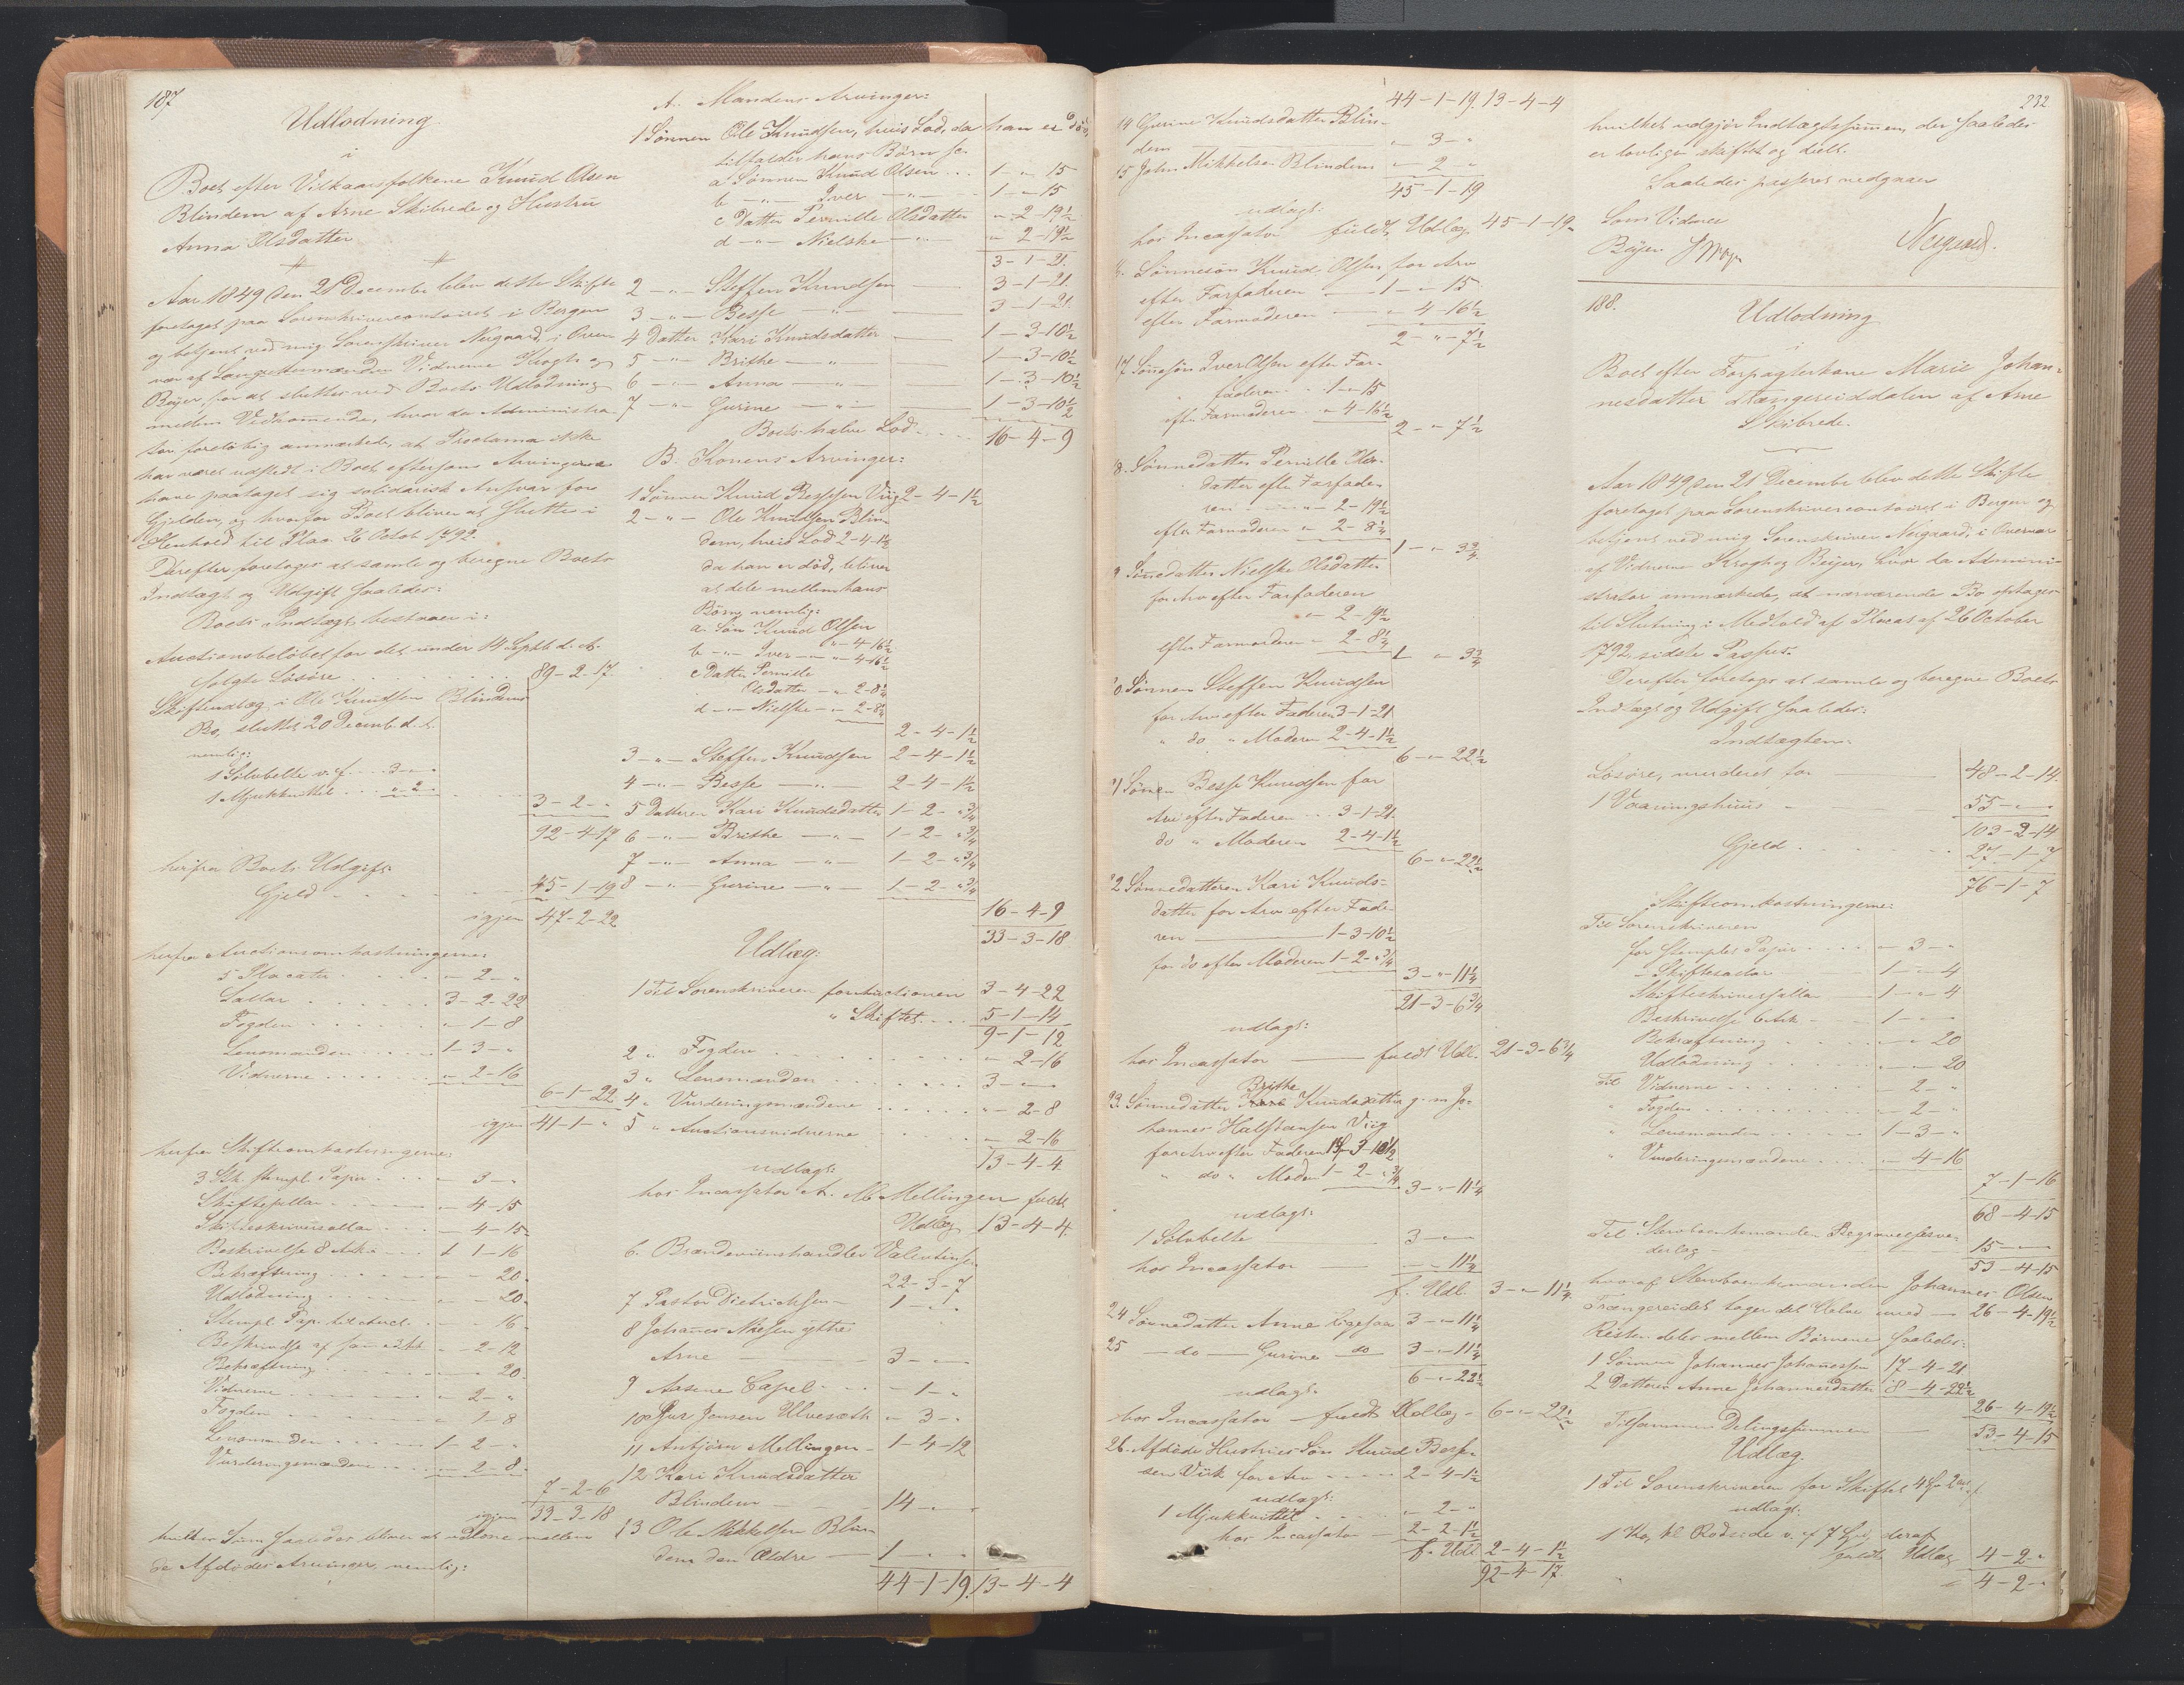 187
Udlodning
i
Boet efter Vilkaarsfolkene Knud Olsen
Blindem af Arne Skibrede og Hustru
Anna Olsdatter
Aar 1849 den 21 December blev dette Skifte
foretaget paa Sorenskrivercontoiret i Bergen
og betjent ved mig Sorenskriver Neigaard, i Over-
vær af Laugrettemænden Vidnerne Krogh og
Beijer, for at slutte ved Boets Udlodning
mellem Vedkomende, hvor da Administra-
tor foreløbig anmærkede, at Proclama ikke
har været udstedt i Boet eftersom Arvingerne
have paataget sig solidarisk Ansvar for
Gjelden, og hvorfor Boet bliver at slutte i
Henhold til Plac 26 Octob 1792.
Derefter foretoges at samle og beregne Boets
Indtægt og Udgift saaledes:
Boets Indtægt bestaaer i:
Auctionsbeløbet for det under 14 Septb d. A.
solgte Løsøre . . . 89-2-17
Skifteudlæg i Ole Knudsen Blindems
Bo, sluttet 20 Decemb. d. A.
nemlig:
1 Sølvbelte v. f. . . 3-"-"
1 Mjukkuttel . . . "-2-"
3-2-"
92-4-17
herfra Boets Udgift:
Gjeld . . . 45-1-19
igjen 47-2-22
herfra Auctionsomkostningerne:
5 Placater . . . "-2-"
Sallar . . . 3-2-22
Fogden . . . "-1-8
Lensmanden . . . 1-3-"
Vidnerne . . . "-2-16
6-1-22
igjen 41-1-"
herfra Skifteomkostningerne
3 Stk. stempl. Papir . . . "-3-"
Skiftesallar . . . "-4-15
Skifteskriversallar . . . "-4-15
Beskrivelse 8 Ark . . . 1-1-16
Bekræftning . . . "-"-20
Udlodning . . . "-"-20
Stempl. Pap. til attest. . . "-"-16
Beskrivelse af samme 3 Ark "-2-12
Bekræftning . . . "-"-20
Vidnerne . . . "-2-"
Fogden . . . "-1-8
Lensmanden . . . 1-2-"
Vurderingsmændene . . . "-2-8
7-2-6
igjen 33-3-18
hvilken Sum saaledes bliver at udlodne mellem
de Afdødes Arvinger, nemlig:
A. Mandens Arvinger:
1 Sønnen Ole Knudsen, hvis Lod, da han er død,
tilfalder hans Børn se
a Sønnen Knud Olsen . . . 1-"-15
b -"- Iver -"- 1-"-15
c Datter Pernille Olsdatter "-2-19½
d -"- Nielske -"- "-2-19½
3-1-21
2 -"- Steffen Knudsen 3-1-21
3 -"- Besse -"- 3-1-21
4 Datter Kari Knudsdatter 1-3-10½
5 -"- Brithe -"- 1-3-10½
6 -"- Anna -"- 1-3-10½
7 -"- Gurine -"- 1-3-10½
Boets halve Lod . . . 16-4-9
B. Konens Arvinger:
1 Sønnen Knud Bessesen Viig 2-4-1½
2 -"- Ole Knudsen Blin-
dem, hvis Lod 2-4-1½
da han er død, bliver
at dele mellem hans
Børn, nemlig:
a. Søn Knud Olsen
"-4-16½
b -"- Iver -"- "-4-16½
c Datter Pernille
Olsdatter "-2-8¼
d -"- Nielske "-2-8¼
2-4-1½
3 -"- Steffen Knudsen 2-4-1½
4 -"- Besse -"- 2-4-1½
5 Datteren Kari Knudsdatter 1-2-"¾
6 -"- Brithe -"- 1-2-"¾
7 -"- Anna -"- 1-2-"¾
8 -"- Gurine -"- 1-2-"¾
16-4-9
33-3-18
Udlæg:
1 Til Sorenskriveren for Auctionen 3-4-22
" Skiftet . . . 5-1-14
9-1-12
2 " Fogden . . . "-2-16
3 " Lensmanden . . . 3-"-"
4 " Vurderingsmændene . . . "-2-8
5 " Auctionsvidnerne . . . "-2-16
13-4-4
udlagt:
hos Incassator A. M. Mellingen fuldt
Udlæg 13-4-4
6. Brændeviinshandler Valentinsen
22-3-7
7 Pastor Dietrichsen 1-"-"
8 Johannes Nilsen yttre
Arne 3-"-"
9 Aasene Capel . . . "-1-"
10 Sjur Jonsen Ulvesæth "-3-"
11 Anbjørn Mellingen 1-4-12
12 Kari Knudsdatter
Blindem 14-"-"
13 Ole Mikkelsen Blin-
dem den Ældre 1-"-"
44-1-19 13-4-4
44-1-19. 13-4-4
14 Gurine Knudsdatter Blin-
dem "-3-"
15 John Mikkelsen Blindem "-2-"
45-1-19
udlagt:
hos Incassator fuldt Udlæg 45-1-19
16. Sønnesøn Knud Olsen, for Arv
efter Farfaderen 1-"-15
efter Farmoderen "-4-16½
2-"-7½
17 Sønnesøn Iver Olsen efter Far-
faderen . . 1-"-15
efter Farmoderen "-4-16½
2-"-7½
18. Sønnedatter Pernille Ols-
datter efter Farfade-
ren "-2-19½
efter Farmoderen "-2-8¼
1-"-3¾
19 Sønnedatter Nielske Olsdatter
for Arv efter Farfaderen
"-2-19½
efter Farmoderen "-2-8¼
1-"-3¾
20 Sønnen Steffen Knudsen
for Arv efter Faderen 3-1-21
" do " Moderen 2-4-1½
6-"-22½
21 Sønnen Besse Knudsen for
Arv efter Faderen . . . 3-1-21
do " Moderen 2-4-1½
6-"-22½
22 Sønnedatteren Kari Knuds-
datter for Arv efter Fade-
ren 1-3-10½
for do efter Moderen 1-2-"¾
3-"-11¼
21-3-6¾
udlagt:
hos Incassator fuldt Udl. 21-3-6¾
Brithe
23. Sønnedatter Kari Knudsdatter g. m. Jo-
hannes Halstensen Viig
for Arv efter Faderen 1-3-10½
" do " Moder 1-2-"¾
3-"-11¼
udlagt:
1 Sølvbelte 3-"-"
hos Incassator "-"-11¼
f. Udl. 3-"-11¼
24 Sønnedatter Anne ligesaa 3-"-11¼
25 -do- Gurine do 3-"-11¼
6-"-22½
udlagt:
hos Incassator fuldt Udlæg 6-"-22½
26. Afdøde Hustrues Søn Knud Besse-
sen Viik for Arv 2-4-1½
udlagt:
1 Mjukkuttel "-2-"
hos Incassator 2-2-1½
f. Udl 2-4-1½
92-4-17
232.
hvilket udgjør Indtægtssummen, der saaledes
er lovligen skiftet og deelt.
Saaledes passeret vedgaaer
Som Vidner
Beijer
Neigaard.
188.
Udlodning
i
Boet efter Forpagterkone Marie Johan-
nesdatter Trængereiddalen af Arne
Skibrede.
Aar 1849 den 21 December blev dette Skifte
foretaget paa Sorenskrivercontoiret i Bergen og
betjent ved mig Sorenskriver Neigaard, i Overvær
af Vidnerne Krogh og Beijer, hvor da Admini-
strator anmærkede, at nærværende Bo optages
til Slutning i Medhold af Placat af 26 October
1792, sidste Passus.
Derefter foretoges at samle og beregne Boets
Indtægt og Udgift saaledes:
Indtægten:
Løsøre, vurderet for 48-2-14
1 Vaaningshuus 55-"-"
103-2-14
Gjeld . . . 27-1-7
76-1-7
Skifteomkostningerne:
Til Sorenskriveren
for stemplet Papir . . . "-3-"
- Skiftesallar 1-"-4
Skifteskriversallar 1-"-4
Beskrivelse 6 Ark 1-"-"
Bekræftning . . . "-"-20
Udlodning . . . "-"-20
Til Vidnerne . . . "-2-"
" Fogden . . . "-2-"
" Lensmanden 1-3-"
" Vurderingsmændene "-4-16
7-1-16
68-4-15
Til Stervboenkemanden Begravelsesve-
derlag 15-"-"
53-4-15
hvoraf Stervboenkemanden Johannes Olsen
Trængereidet tager det Halve med 26-4-19½
Resten deles mellem Børnene saaledes:
1 Sønnen Johannes Johannessen 17-4-21
2 Datteren Anne Johannesdatter 8-4-22½
26-4-19½
Tilsammen Delingssummen 53-4-15
Udlæg.
1 Til Sorenskriveren for Skiftet 4 Sp 2 ort
udlagt:
1 Ko, kl. Rødside v. f. 7 Spd, deraf
fuldt Udlæg 4-2-"
4-2-"